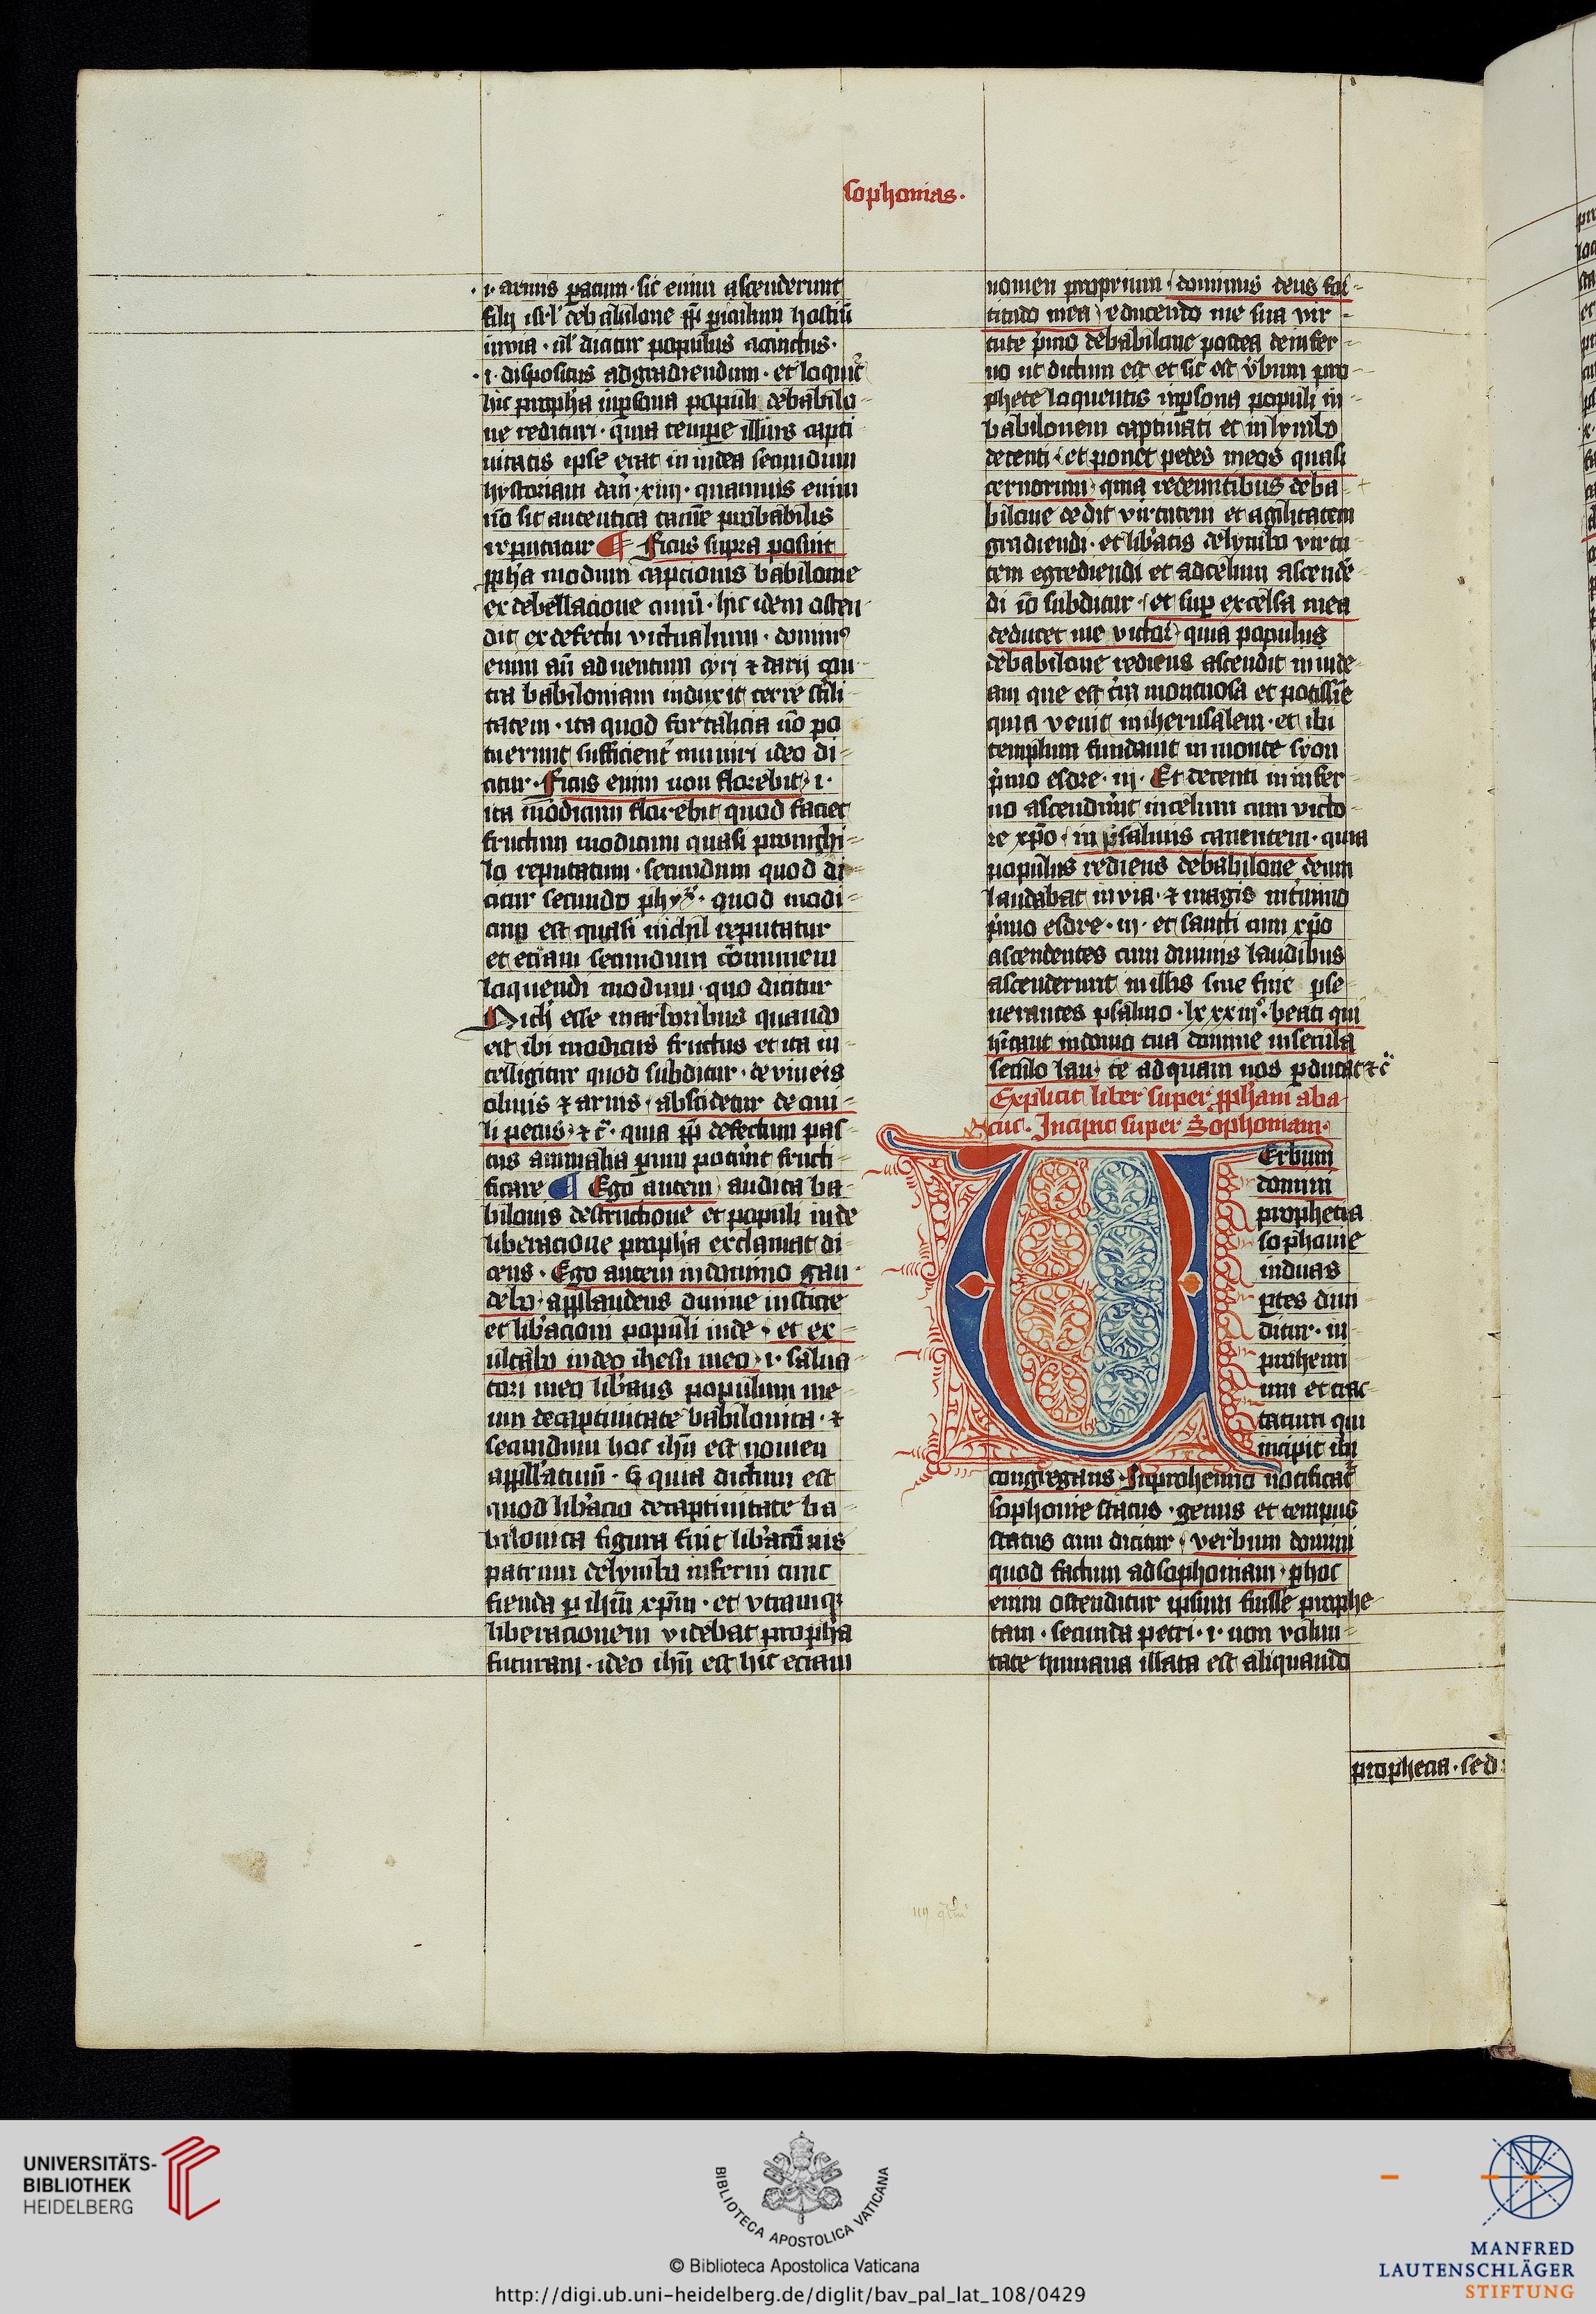 sophonias.
.i. armis paratum. sic enim ascenderunt
filij isrl' de babilone ꝓpter piculum hostiū
in via. ul' dicatur populus accinctus.
.i. dispositus ad gradiendum. et loquit᷑
hic propha in psona populi de babilo
ne redituri. quia tempe illius capti
uitatis ipse erat in iudea secundum
hystoriam dan̄. xiiij. quamuis enim
nō sit autentica tamē probabilis
reputatur ¶ Ficus supra posuit
ꝓpha modum captionis babilonie
ex debellacione ciuiū. hic idem osten
dit ex defectu victualium. dominꝰ
enim an̄ aduentum cyri ⁊ darij con
tra babiloniam induxit terre st'ili
tatem. ita quod fortalicia nō po
tuerunt sufficient' muniri ideo di
citur. Ficus enim non florebit .i.
ita modicum florebit quod faciet
fructum modicum quasi pro nichi
lo reputatum. secundum quod di
citur secundo phy. quod modi
cum est quasi nichil reputatur
et etiam secundum cōmunem
loquendi modum. quo dicitur
Nich' esse in arboribus quando
est ibi modicus fructus et ita in
telligitur quod subditur. de vineis
oliuis ⁊ aruis. abscidetur de oui
li pecus ⁊ c̄. quia ꝓp̄ defectum pas
tus animalia parum potuint fructi
ficare ¶ Ego autem audita ba
bilonis destructione et populi inde
liberacione propha exclamat di
cens. Ego autem in domino gau
debo. applaudens diuine iusticie
et lib'acioni populi inde. et ex
ultabo in deo ihesu meo .i. salua
tori meo lib'ans populum me
um de captiuitate babilonica. ⁊
secundum hoc ihū est nomen
appll'atiuū. S; quia dictum est
quod lib'acio de captiuitate ba
bilonica figura fuit lib'acōnis
patrum de lymbo inferni tunc
fienda p ihm̄ xp̄m. et vtramqꝫ
liberacionem videbat propha
futuram. ideo ihū est hic eciam
nomen proprium. dominus deus for
titudo mea educendo me sua vir
tute p'mo de babilone postea de infer
no ut dictum est et sic est v'bum pro
phete loquentis in psona populi in
babilonem captiuati et in lymbo
detenti. et ponet pedes meos quasi
ceruorum quia redeuntibus de ba
bilone dedit virtutem et agilitatem
gradiendi. et lib'atis de lymbo virtu
tem egrediendi et ad celum ascende
di iō subditur. et sup excelsa mea
deducet me victor quia populus
de babilone rediens ascendit in iude
am que est t'ra montuosa et potissīe
quia venit in iherusalem. et ibi
templum fundauit in monte syon
p'mo esdre. iij. Et detenti in infer
no ascenderunt in celum cum victo
re xp̄o. in psalmis canentem. quia
populus rediens de babilone deum
laudabat in via. ⁊ magis in t'mino
p'mo esdre. iij. et sancti cum xp̄o
ascendentes cum diuinis laudibus
ascenderunt in illis sine fine pse
uerantes psalmo. lxxxiij°. beati qui
h'itant in domo tua domine in secula
seculo lau. te ad quam nos pducat ⁊c̄
Explicit liber super ꝓpham aba
cuc. Incipit super Sophoniam.
VErbum
domini
prophetia
sophonie
in duas
ptes diui
ditur. in
prohemi
um et trac
tatum qui
incipit ibi
congregans. In prohemio notificat᷑
sophonie status. genus et tempus
status cum dicitur. verbum domini
quod factum ad sophoniam. p hoc
enim ostenditur ipsum fuisse prophe
tam. secunda petri. i. non volun
tate humana illata est aliquando
prophecia. sed
UNIVERSITÄTS-
BIBLIOTHEK
HEIDELBERG
BIBLIOTECA APOSTOLICA VATICANA
© Biblioteca Apostolica Vaticana
http://digi.ub.uni-heidelberg.de/diglit/bav_pal_lat_108/0429
MANFRED
LAUTENSCHLÄGER
STIFTUNG